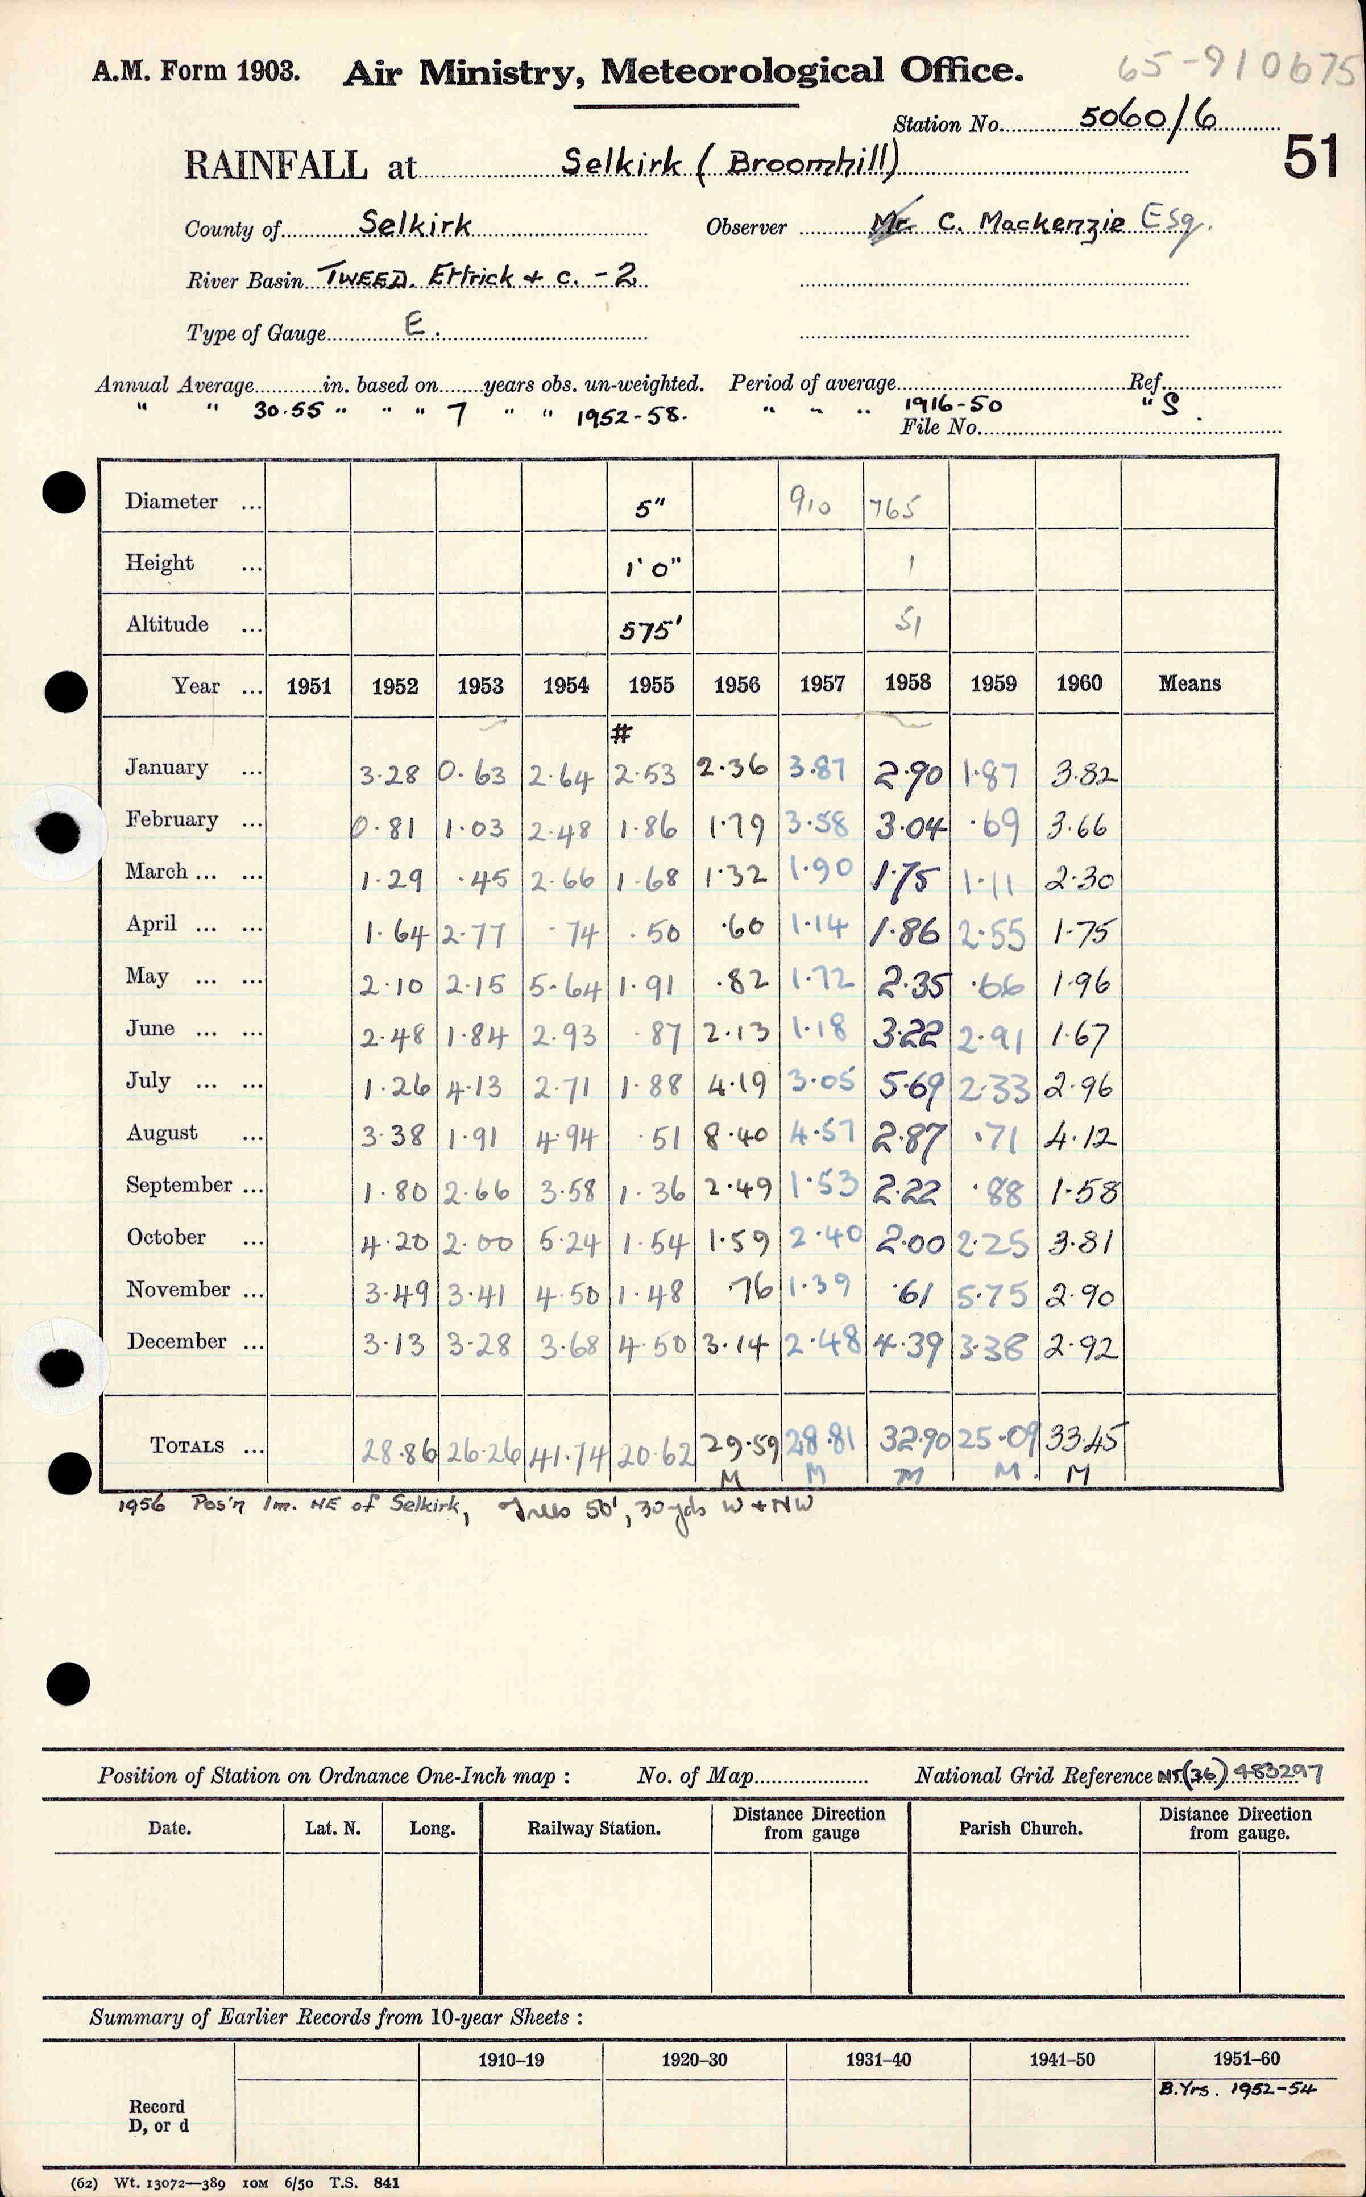 A.M. Form 1903. Air Ministry, Meteorological Office. 65-910675
Station No. 5060/6
51
RAINFALL at Selkirk (Broomhill)
County of Selkirk Observer Mr. C. Mackenzie Esq.
River Basin TWEED. Ettrick & c. -2
Type of Gauge E.
Annual Average in. based on years obs. un-weighted. Period of average Ref.
" " 30.55 " " " 7 " " 1952-58. " " " 1916-50 " S.
File No.
Diameter ... 5" 910 765
Height ... 1' 0" 1
Altitude ... 575' 51
Year ... 1951 1952 1953 1954 1955 1956 1957 1958 1959 1960 Means
#
January ... 3.28 0.63 2.64 2.53 2.36 3.87 2.90 1.87 3.82
February ... 0.81 1.03 2.48 1.86 1.79 3.58 3.04 .69 3.66
March ... ... 1.29 .45 2.66 1.68 1.32 1.90 1.75 1.11 2.30
April ... ... 1.64 2.77 .74 .50 .60 1.14 1.86 2.55 1.75
May ... ... 2.10 2.15 5.64 1.91 .82 1.72 2.35 .66 1.96
June ... ... 2.48 1.84 2.93 .87 2.13 1.18 3.22 2.91 1.67
July ... ... 1.26 4.13 2.71 1.88 4.19 3.05 5.69 2.33 2.96
August ... 3.38 1.91 4.94 .51 8.40 4.57 2.87 .71 4.12
September ... 1.80 2.66 3.58 1.36 2.49 1.53 2.22 .88 1.58
October ... 4.20 2.00 5.24 1.54 1.59 2.40 2.00 2.25 3.81
November ... 3.49 3.41 4.50 1.48 .76 1.39 .61 5.75 2.90
December ... 3.13 3.28 3.68 4.50 3.14 2.48 4.39 3.38 2.92
TOTALS ... 28.86 26.26 41.74 20.62 29.59 28.81 32.90 25.09 33.45
M M M M. M
1956 Pos'n 1m. NE of Selkirk, Trees 50', 30 yds W + NW
Position of Station on Ordnance One-Inch map : No. of Map National Grid Reference NT(36) 483297
Date. Lat. N. Long. Railway Station. Distance Direction from gauge Parish Church. Distance Direction from gauge.
Summary of Earlier Records from 10-year Sheets :
1910–19 1920–30 1931–40 1941–50 1951–60
B.Yrs. 1952-54
Record
D, or d
(62) Wt. 13072—389 10M 6/50 T.S. 841